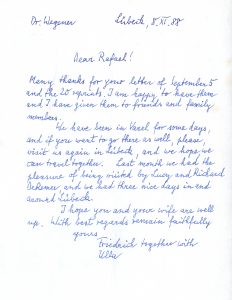 Dr. Wegener Lübeck, 8.XI.88
Dear Rafael!
Many thanks for your letter of September 5
and the 20 reprints. I am happy to have them
and I have given them to friends and family
members.
We have been in Basel for some days,
and if you want to go there as well, please,
visit us again in Lübeck, and we hope we
can travel together. Last month we had the
pleasure of being visited by Lucy and Richard
and we had three nice days in and
around Lübeck.
I hope you and your wife are well
up. With best regards remain faithfully
yours
Friedrich together with
Ulla